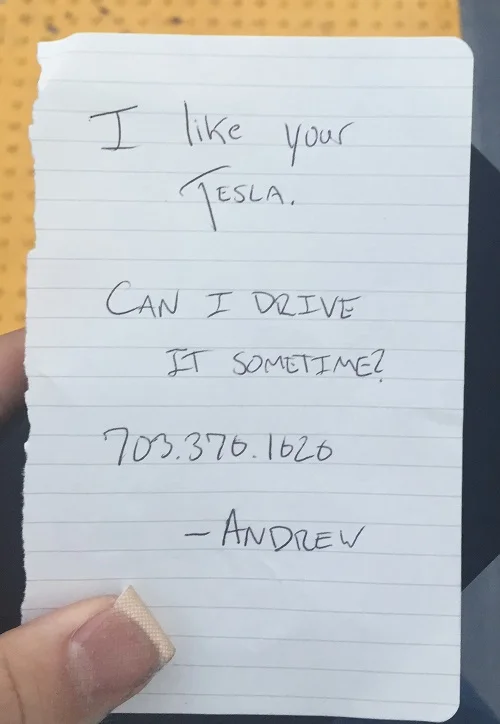 I like your
TESLA.
CAN I DRIVE
IT SOMETIME?
703.376.1626
- ANDREW